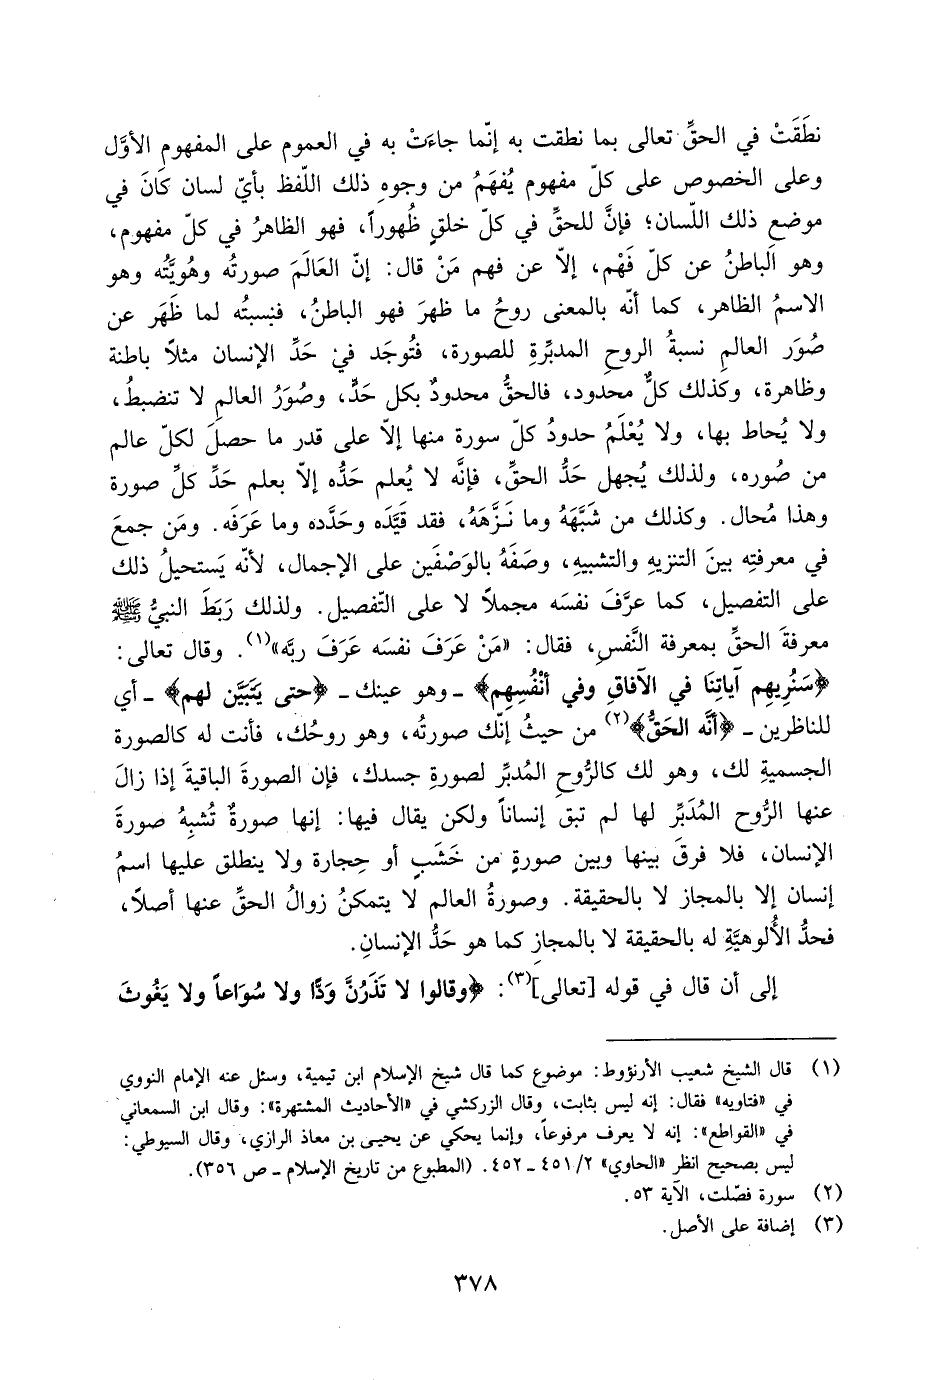 نطَقَتْ في الحقِّ تعالى بما نطقت به إنّما جاءَتْ به في العموم على المفهوم الأوَّل
وعلى الخصوص على كلّ مفهوم يُفهَمُ من وجوهِ ذلك اللّفظ بأيّ لسان كَانَ في
موضع ذلك اللّسان؛ فإنَّ للحقِّ في كلّ خلقٍ ظُهوراً، فهو الظاهرُ في كلّ مفهوم،
وهو الباطنُ عن كلّ فَهْم، إلاّ عن فهم مَنْ قال: إنّ العَالَمَ صورتُه وهُويَّتُه وهو
الاسمُ الظاهر، كما أنّه بالمعنى روحُ ما ظهرَ فهو الباطنُ، فنِسبتُه لما ظَهَر عن
صُوَر العالمِ نسبةُ الروحِ المدبِّرةِ للصورة، فتُوجَد في حَدِّ الإنسان مثلاً باطنة
وظاهرة، وكذلك كلٌّ محدود، فالحقُّ محدودٌ بكل حَدٍّ، وصُوَرُ العالمِ لا تنضبطُ،
ولا يُحاط بها، ولا يُعْلَمُ حدودُ كلّ سورة منها إلاّ على قدر ما حصلَ لكلّ عالم
من صُوره، ولذلك يُجهل حَدُّ الحقِّ، فإنَّه لا يُعلم حَدُّه إلاّ بعلم حَدِّ كلِّ صورة
وهذا مُحال. وكذلك من شَبَّهَهُ وما نَزَّهَهُ، فقد قيَّدَه وحَدَّده وما عَرَفَه. ومَن جمعَ
في معرفتِه بينَ التنزيهِ والتشبيهِ، وصَفَهُ بالوَصْفَين على الإجمال، لأنّه يَستحيلُ ذلك
على التفصيل، كما عرَّفَ نفسَه مجملاً لا على التّفصيل. ولذلك رَبَطَ النبيُّ ﷺ
معرفةَ الحقِّ بمعرفة النَّفسِ، فقال: «مَنْ عَرَفَ نفسَه عَرَفَ ربَّه»(١). وقال تعالى:
﴿سَنُرِيهِم آياتِنَا في الآفاقِ وفي أنْفُسِهِم﴾ ـ وهو عينك ـ ﴿حتى يَتَبيَّن لهم﴾ ـ أي
للناظرين ـ ﴿أنَّه الحَقُّ﴾(٢) من حيثُ إنّك صورتُه، وهو روحُك، فأنت له كالصورة
الجسميةِ لك، وهو لك كالرُّوحِ المُدبِّر لصورةِ جسدك، فإن الصورةَ الباقيةَ إذا زالَ
عنها الرُّوح المُدَبِّر لها لم تبق إنساناً ولكن يقال فيها: إنها صورةٌ تُشبِهُ صورةَ
الإنسان، فلا فرقَ بينها وبين صورةٍ من خَشَبٍ أو حِجارة ولا ينطلق عليها اسمُ
إنسان إلا بالمجاز لا بالحقيقة. وصورةُ العالم لا يتمكنُ زوالُ الحقِّ عنها أصلاً،
فحدُّ الأُلوهيَّةِ له بالحقيقة لا بالمجاز كما هو حَدُّ الإنسانِ.
إلى أن قال في قوله [تعالى](٣): ﴿وقالوا لا تَذَرُنَّ وَدًّا ولا سُوَاعاً ولا يَغُوثَ
(١) قال الشيخ شعيب الأرنؤوط: موضوع كما قال شيخ الإسلام ابن تيمية، وسئل عنه الإمام النووي
في «فتاويه» فقال: إنه ليس بثابت، وقال الزركشي في «الأحاديث المشتهرة»: وقال ابن السمعاني
في «القواطع»: إنه لا يعرف مرفوعاً، وإنما يحكي عن يحيى بن معاذ الرازي، وقال السيوطي:
ليس بصحيح انظر «الحاوي» ٢/ ٤٥١ ـ ٤٥٢. (المطبوع من تاريخ الإسلام ـ ص ٣٥٦).
(٢) سورة فصّلت، الآية ٥٣.
(٣) إضافة على الأصل.
٣٧٨